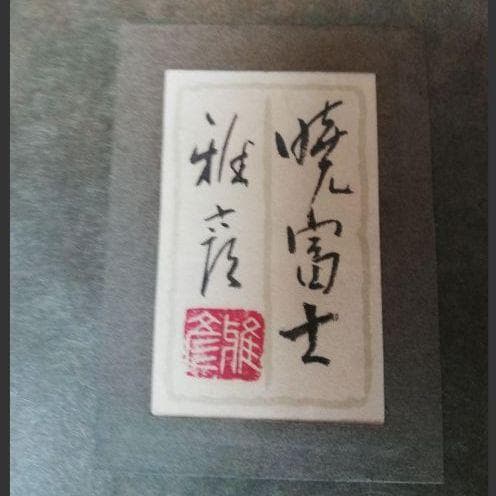 暁富士
雅彦